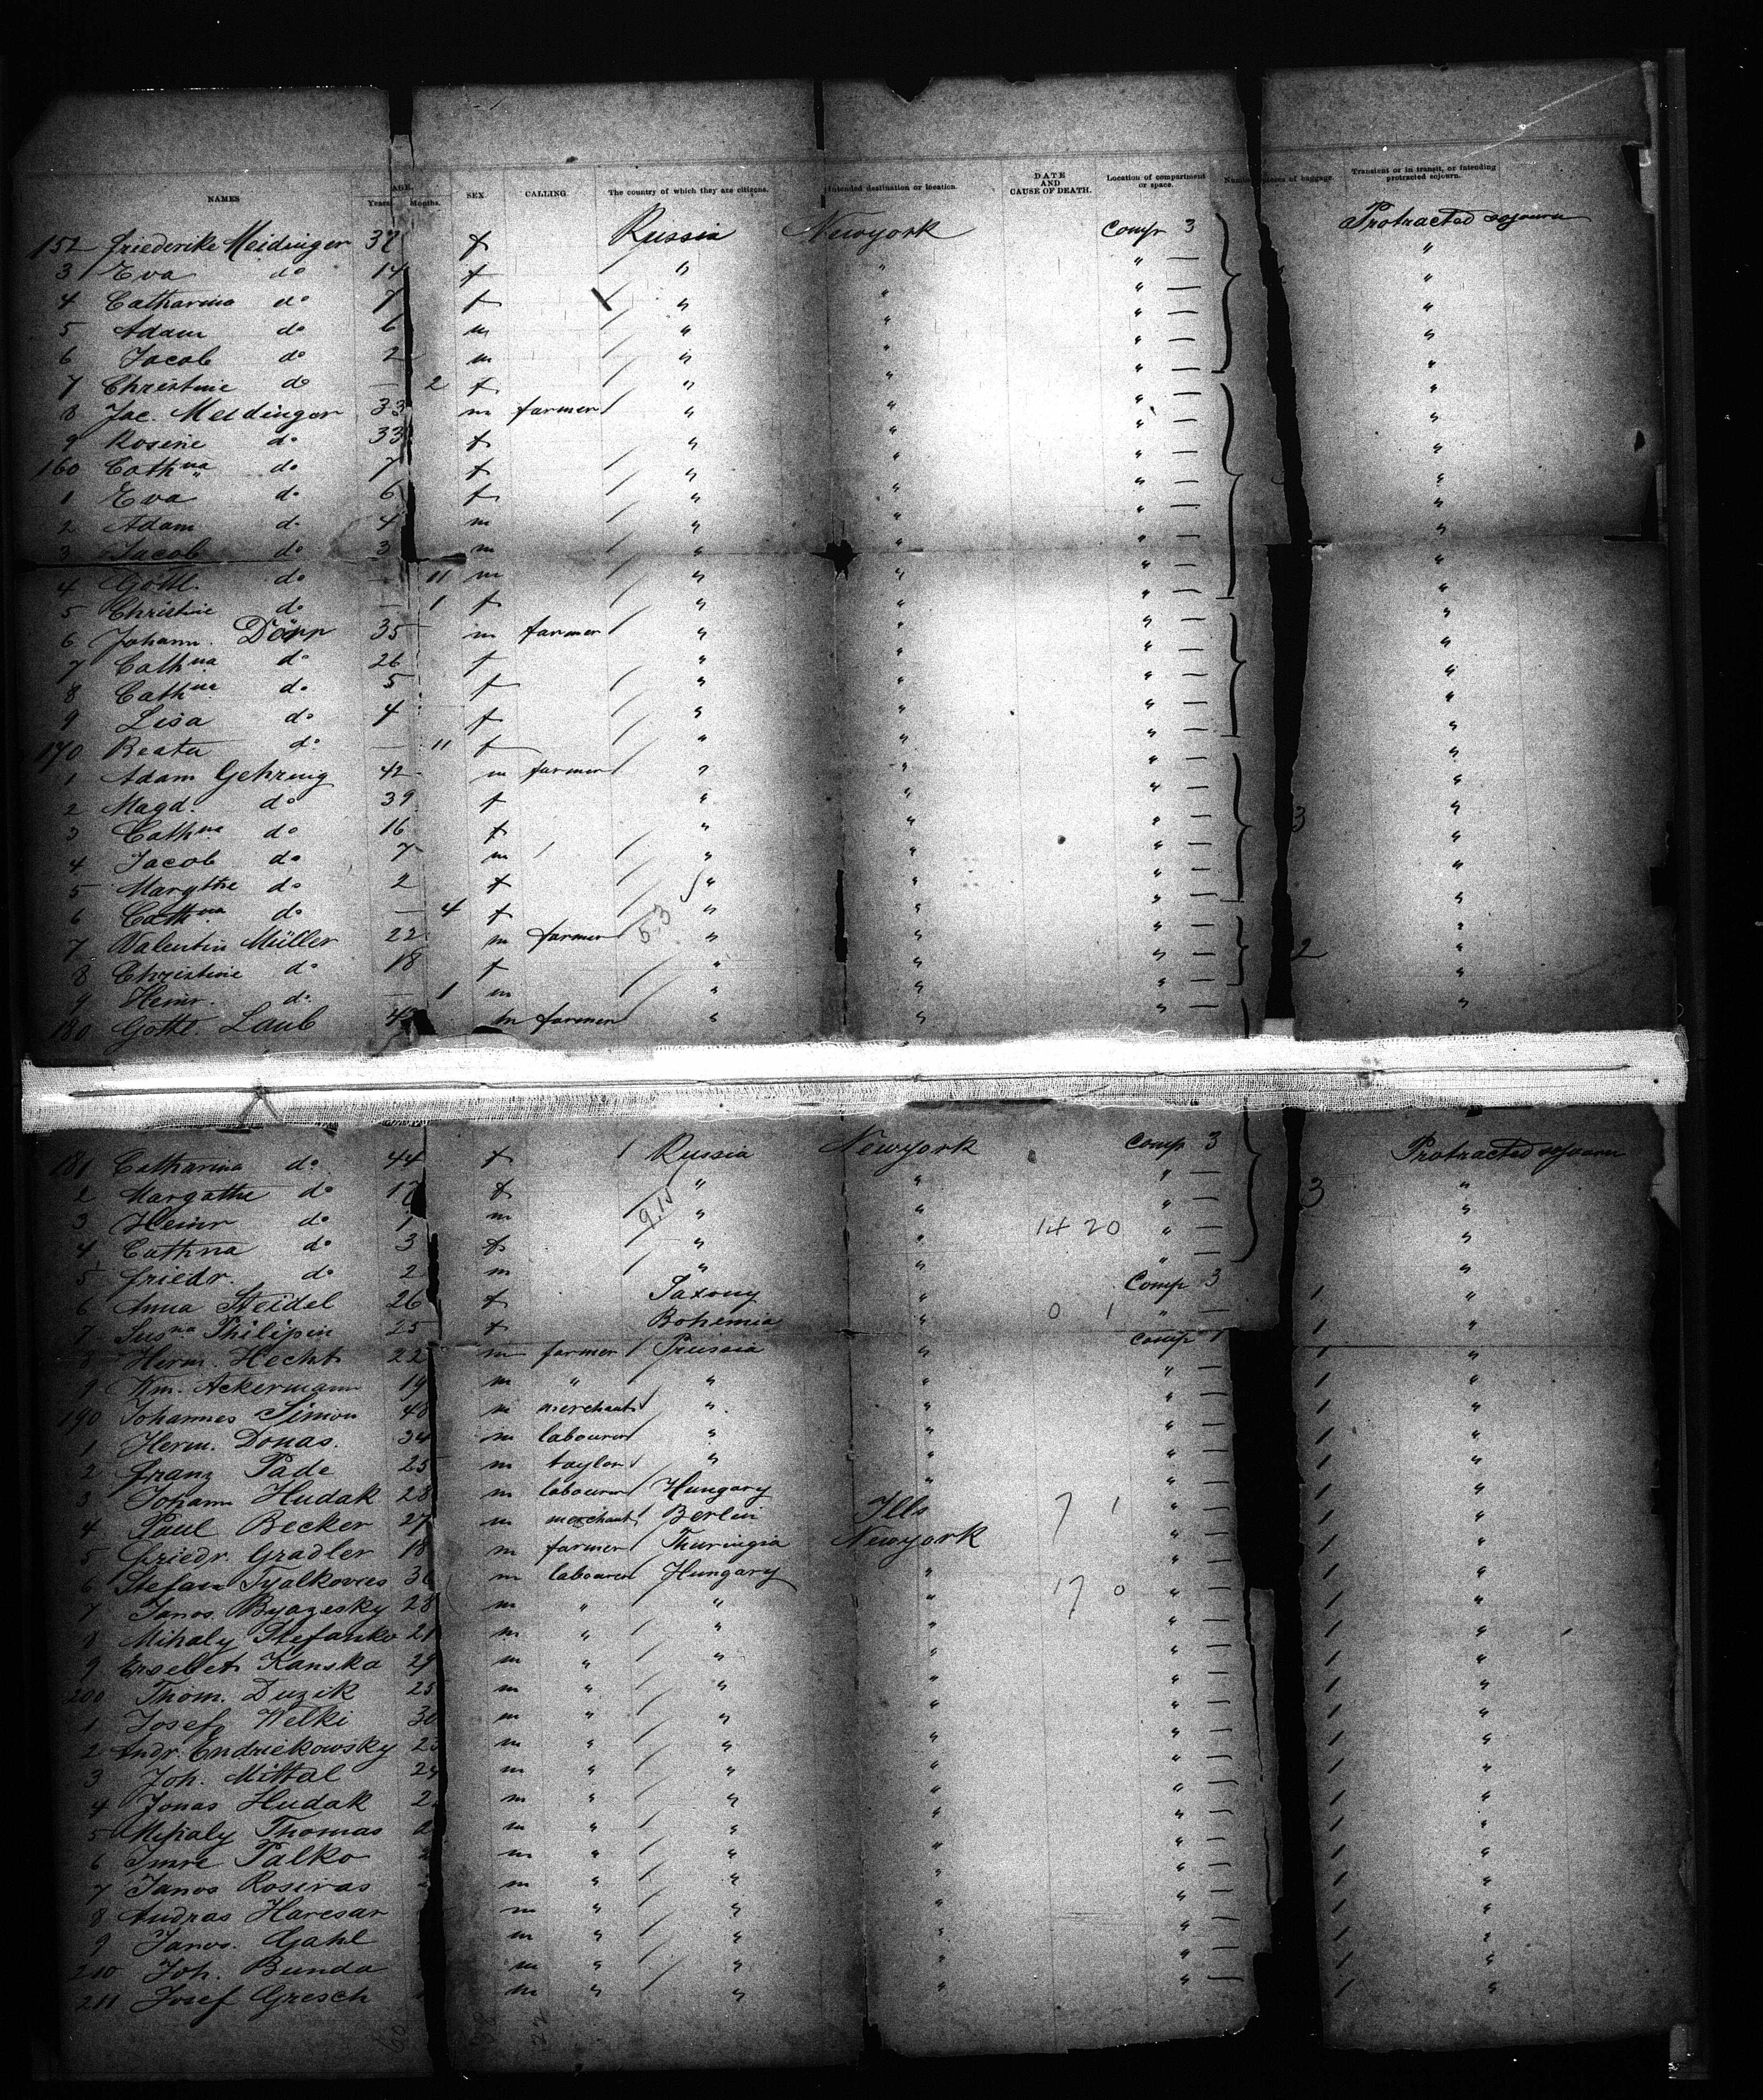 NAMES AGE. Years Months. SEX CALLING. The country of which they are citizens. Intended destination or location. DATE AND CAUSE OF DEATH. Location of compartment or space. Number pieces of baggage. Transient or in transit, or intending protracted sojourn.
152 Friederike Meidinger 37 f Russia Newyork Comp 3 Protracted sojourn
3 Eva do 14 f " " " — "
4 Catharina do 7 f " " " — "
5 Adam do 6 m " " " — "
6 Jacob do 2 m " " " — "
7 Christine do — 2 f " " " — "
8 Jac. Meidinger 33 m farmer " " " — "
9 Rosine do 33 f " " " — "
160 Cathna do 7 f " " " — "
1 Eva do 6 f " " " — "
2 Adam do 4 m " " " — "
3 Jacob do 3 m " " " — "
4 Gottl. do — 11 m " " " — "
5 Christine do — 1 f " " " — "
6 Johann. Dörr 35 m farmer " " " — "
7 Cathna do 26 f " " " — "
8 Cathna do 5 f " " " — "
9 Lisa do 4 f " " " — "
170 Beata do — 11 f " " " — "
1 Adam Gehring 42 m farmer " " " — "
2 Magd. do 39 f " " " — "
3 Cathna do 16 f " " " — 3 "
4 Jacob do 7 m " " " — "
5 Margthe do 2 f " " " — "
6 Cathna do — 4 f " " " — "
7 Valentin Müller 22 m farmer 53 " " " — "
8 Christine do 18 f " " " — 2 "
9 Heinr. do — 1 m " " " — "
180 Gottl. Laub m farmer " " " — "
181 Catharina do 44 f Russia Newyork Comp 3 Protracted sojourn
2 Margathe do 17 f " " " — 3 "
3 Heinr do m " " " — "
4 Cathna do 3 f " " 14 20 " — "
5 Friedr. do 2 m " " " — "
6 Anna Steidel 26 f Saxony " Comp 3 1 "
7 Susna Philipin 25 f Bohemia " 0 1 " — 1 "
8 Herm. Hecht 22 m farmer Prussia " Comp 1 1 "
9 Wm. Ackermann 19 m " " " " — 1 "
190 Johannes Simon 48 m merchant " " " — 1 "
1 Herm. Donas. 34 m labourer " " " — 1 "
2 Franz Pade 25 m taylor " " " — 1 "
3 Johann Hudak 28 m labourer Hungary " " — 1 "
4 Paul Becker 27 m merchant Berlin Ills 7 1 " — 1 "
5 Friedr. Gradler 18 m farmer Thuringia Newyork " — 1 "
6 Stefan 36 m labourer Hungary " 17 0 " — 1 "
7 Janos 28 m " " " " — 1 "
8 Mihaly Stefanko 21 m " " " " — 1 "
9 Ersebet Kanska 29 m " " " " — 1 "
200 Thom. Duzik 25 m " " " " — 1 "
1 Josef Welki 30 m " " " " — 1 "
2 Andr. Endrickowsky 23 m " " " " — 1 "
3 Joh. Mittal 24 m " " " " — 1 "
4 Jonas Hudak m " " " " — 1 "
5 Mihaly Thomas m " " " " — 1 "
6 Imre Palko m " " " " — 1 "
7 Janos Rosivas m " " " " — 1 "
8 Andras Haresar m " " " " — 1 "
9 Janos. Gahl m " " " " — 1 "
210 Joh. Bunda m " " " " — 1 "
211 Josef Gresch m " " " " — 1 "